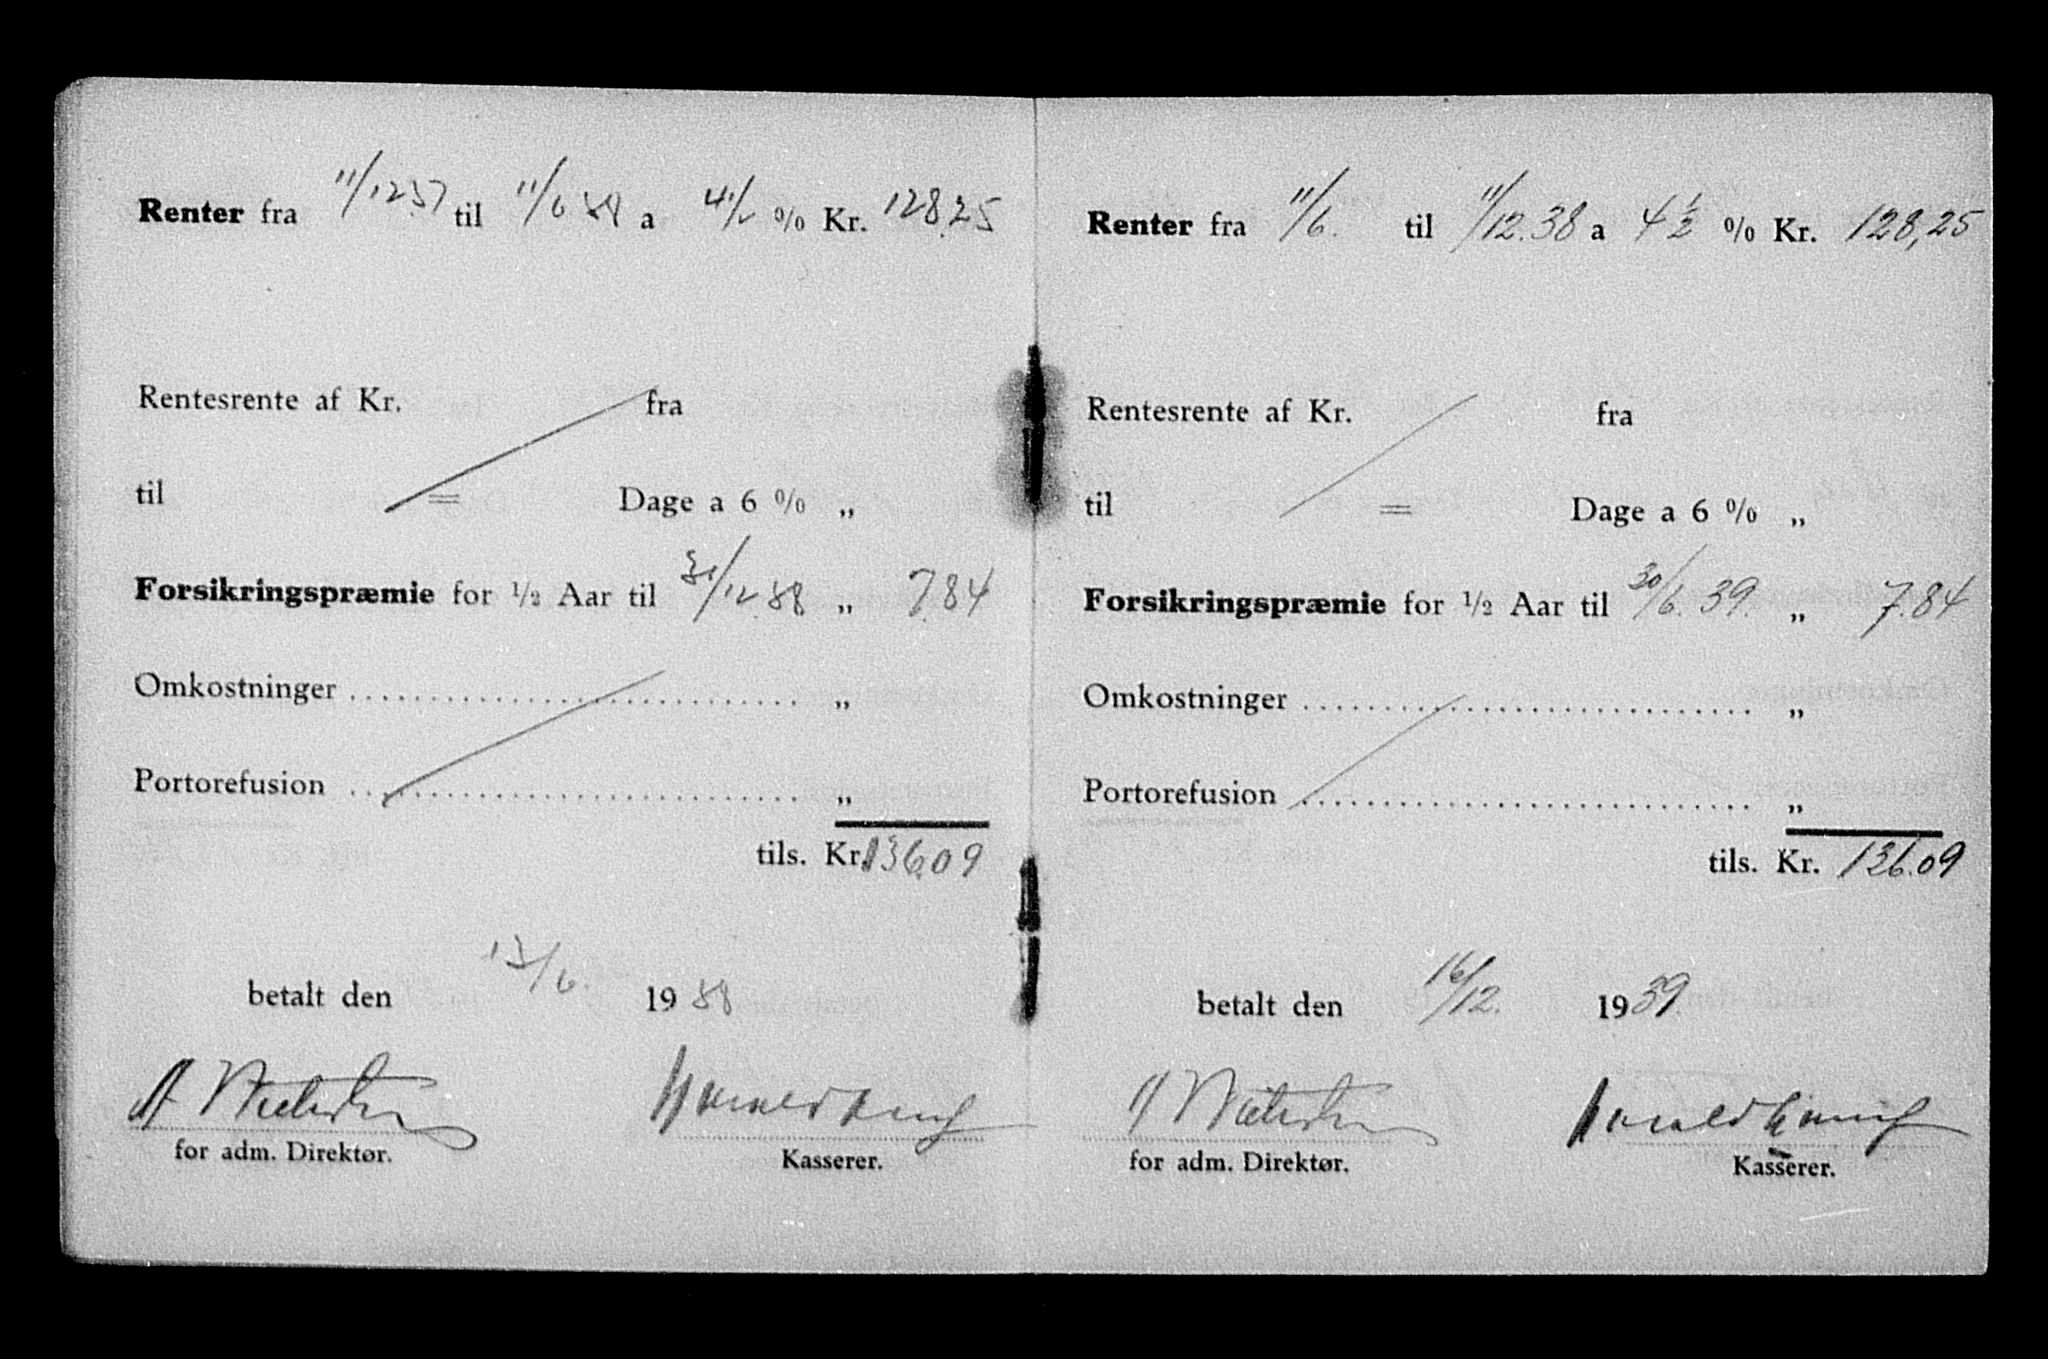 Renter fra 11/12 37 til 11/6 38 a 4 1/2 % Kr. 128.25
Rentesrente af Kr. fra
til = Dage a 6 % „
Forsikringspræmie for ½ Aar til 31/12 38 „ 7.84
Omkostninger .............................. „
Portorefusion .............................. „
tils. Kr. 136.09
betalt den 13/6. 1938
for adm. Direktør. Kasserer.
Renter fra 11/6. til 11/12.38 a 4 1/2 % Kr. 128,25
Rentesrente af Kr. fra
til = Dage a 6 % „
Forsikringspræmie for ½ Aar til 30/6. 39. „ 7.84
Omkostninger .............................. „
Portorefusion .............................. „
tils. Kr. 136.09
betalt den 16/12. 1939.
for adm. Direktør. Kasserer.